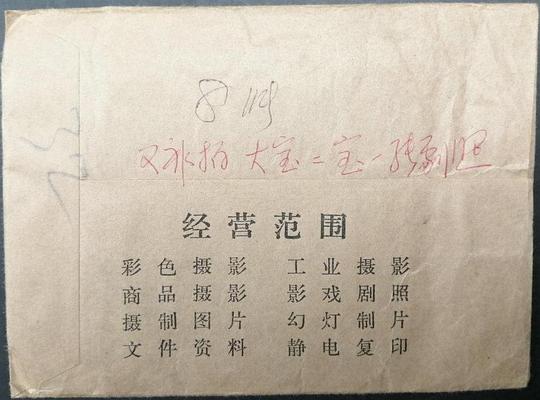 大宝二宝一张
经营范围
彩色摄影 工业摄影
商品摄影 影戏剧照
摄制图片 幻灯制片
文件资料 静电复印